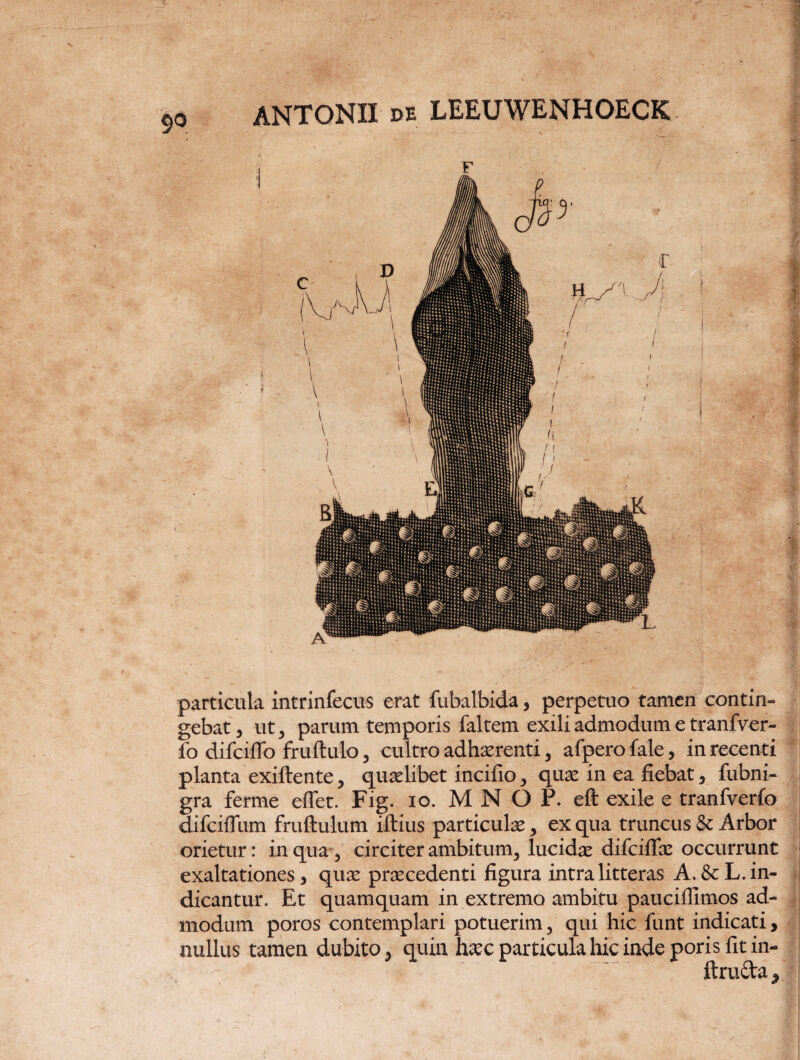 90 ANTONII DE LEEUWENHOECK
F
fig: 9.
C D H I
E G
B K
A L
particula intrinſecus erat ſubalbida, perpetuo tamen contin-
gebat, ut, parum temporis ſaltem exili admodum e tranſver-
ſo diſciſſo fruſtulo, cultro adhærenti, aſpero ſale, in recenti
planta exiſtente, quælibet inciſio, quæ in ea fiebat, ſubni-
gra ferme eſſet. Fig. 10. M N O P. eſt exile e tranſverſo
diſciſſum fruſtulum iſtius particulæ, ex qua truncus & Arbor
orietur: in qua, circiter ambitum, lucidæ diſciſſæ occurrunt
exaltationes, quæ præcedenti figura intra litteras A. & L. in-
dicantur. Et quamquam in extremo ambitu pauciſſimos ad-
modum poros contemplari potuerim, qui hic ſunt indicati,
nullus tamen dubito, quin hæc particula hic inde poris ſit in-
ſtructa,